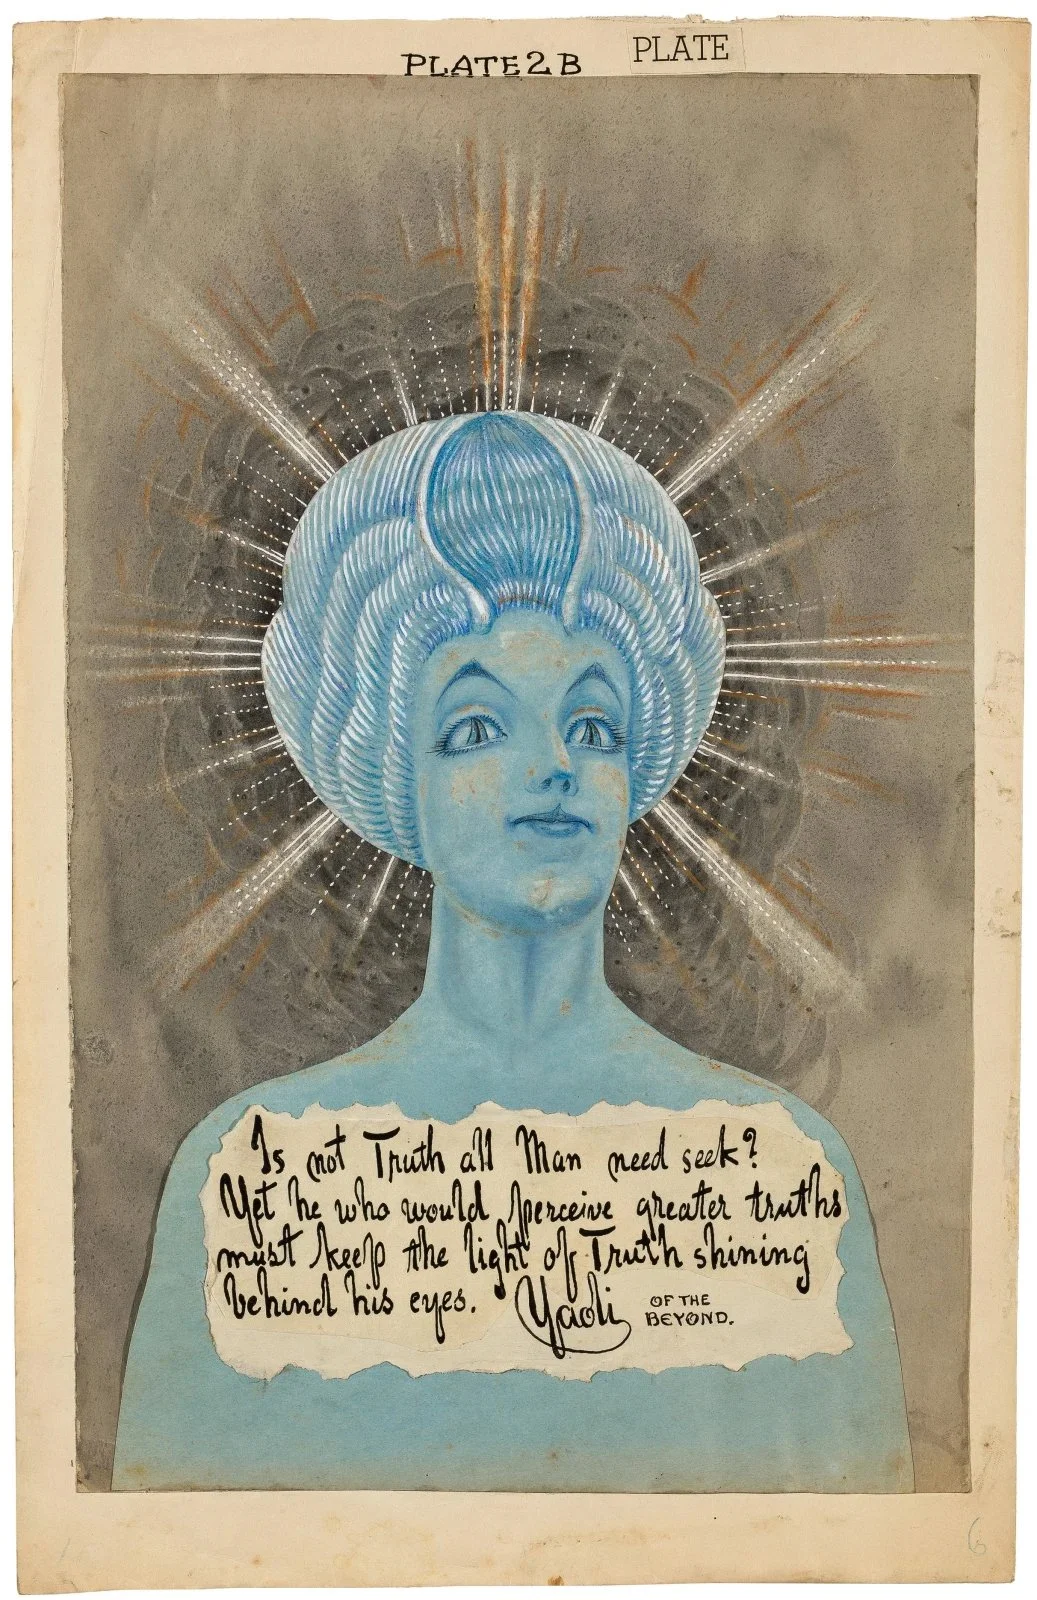 PLATE 2B
PLATE
Is not Truth all Man need seek?
Yet he who would perceive greater truths
must keep the light of Truth shining
behind his eyes. Yaoli OF THE
BEYOND.
6